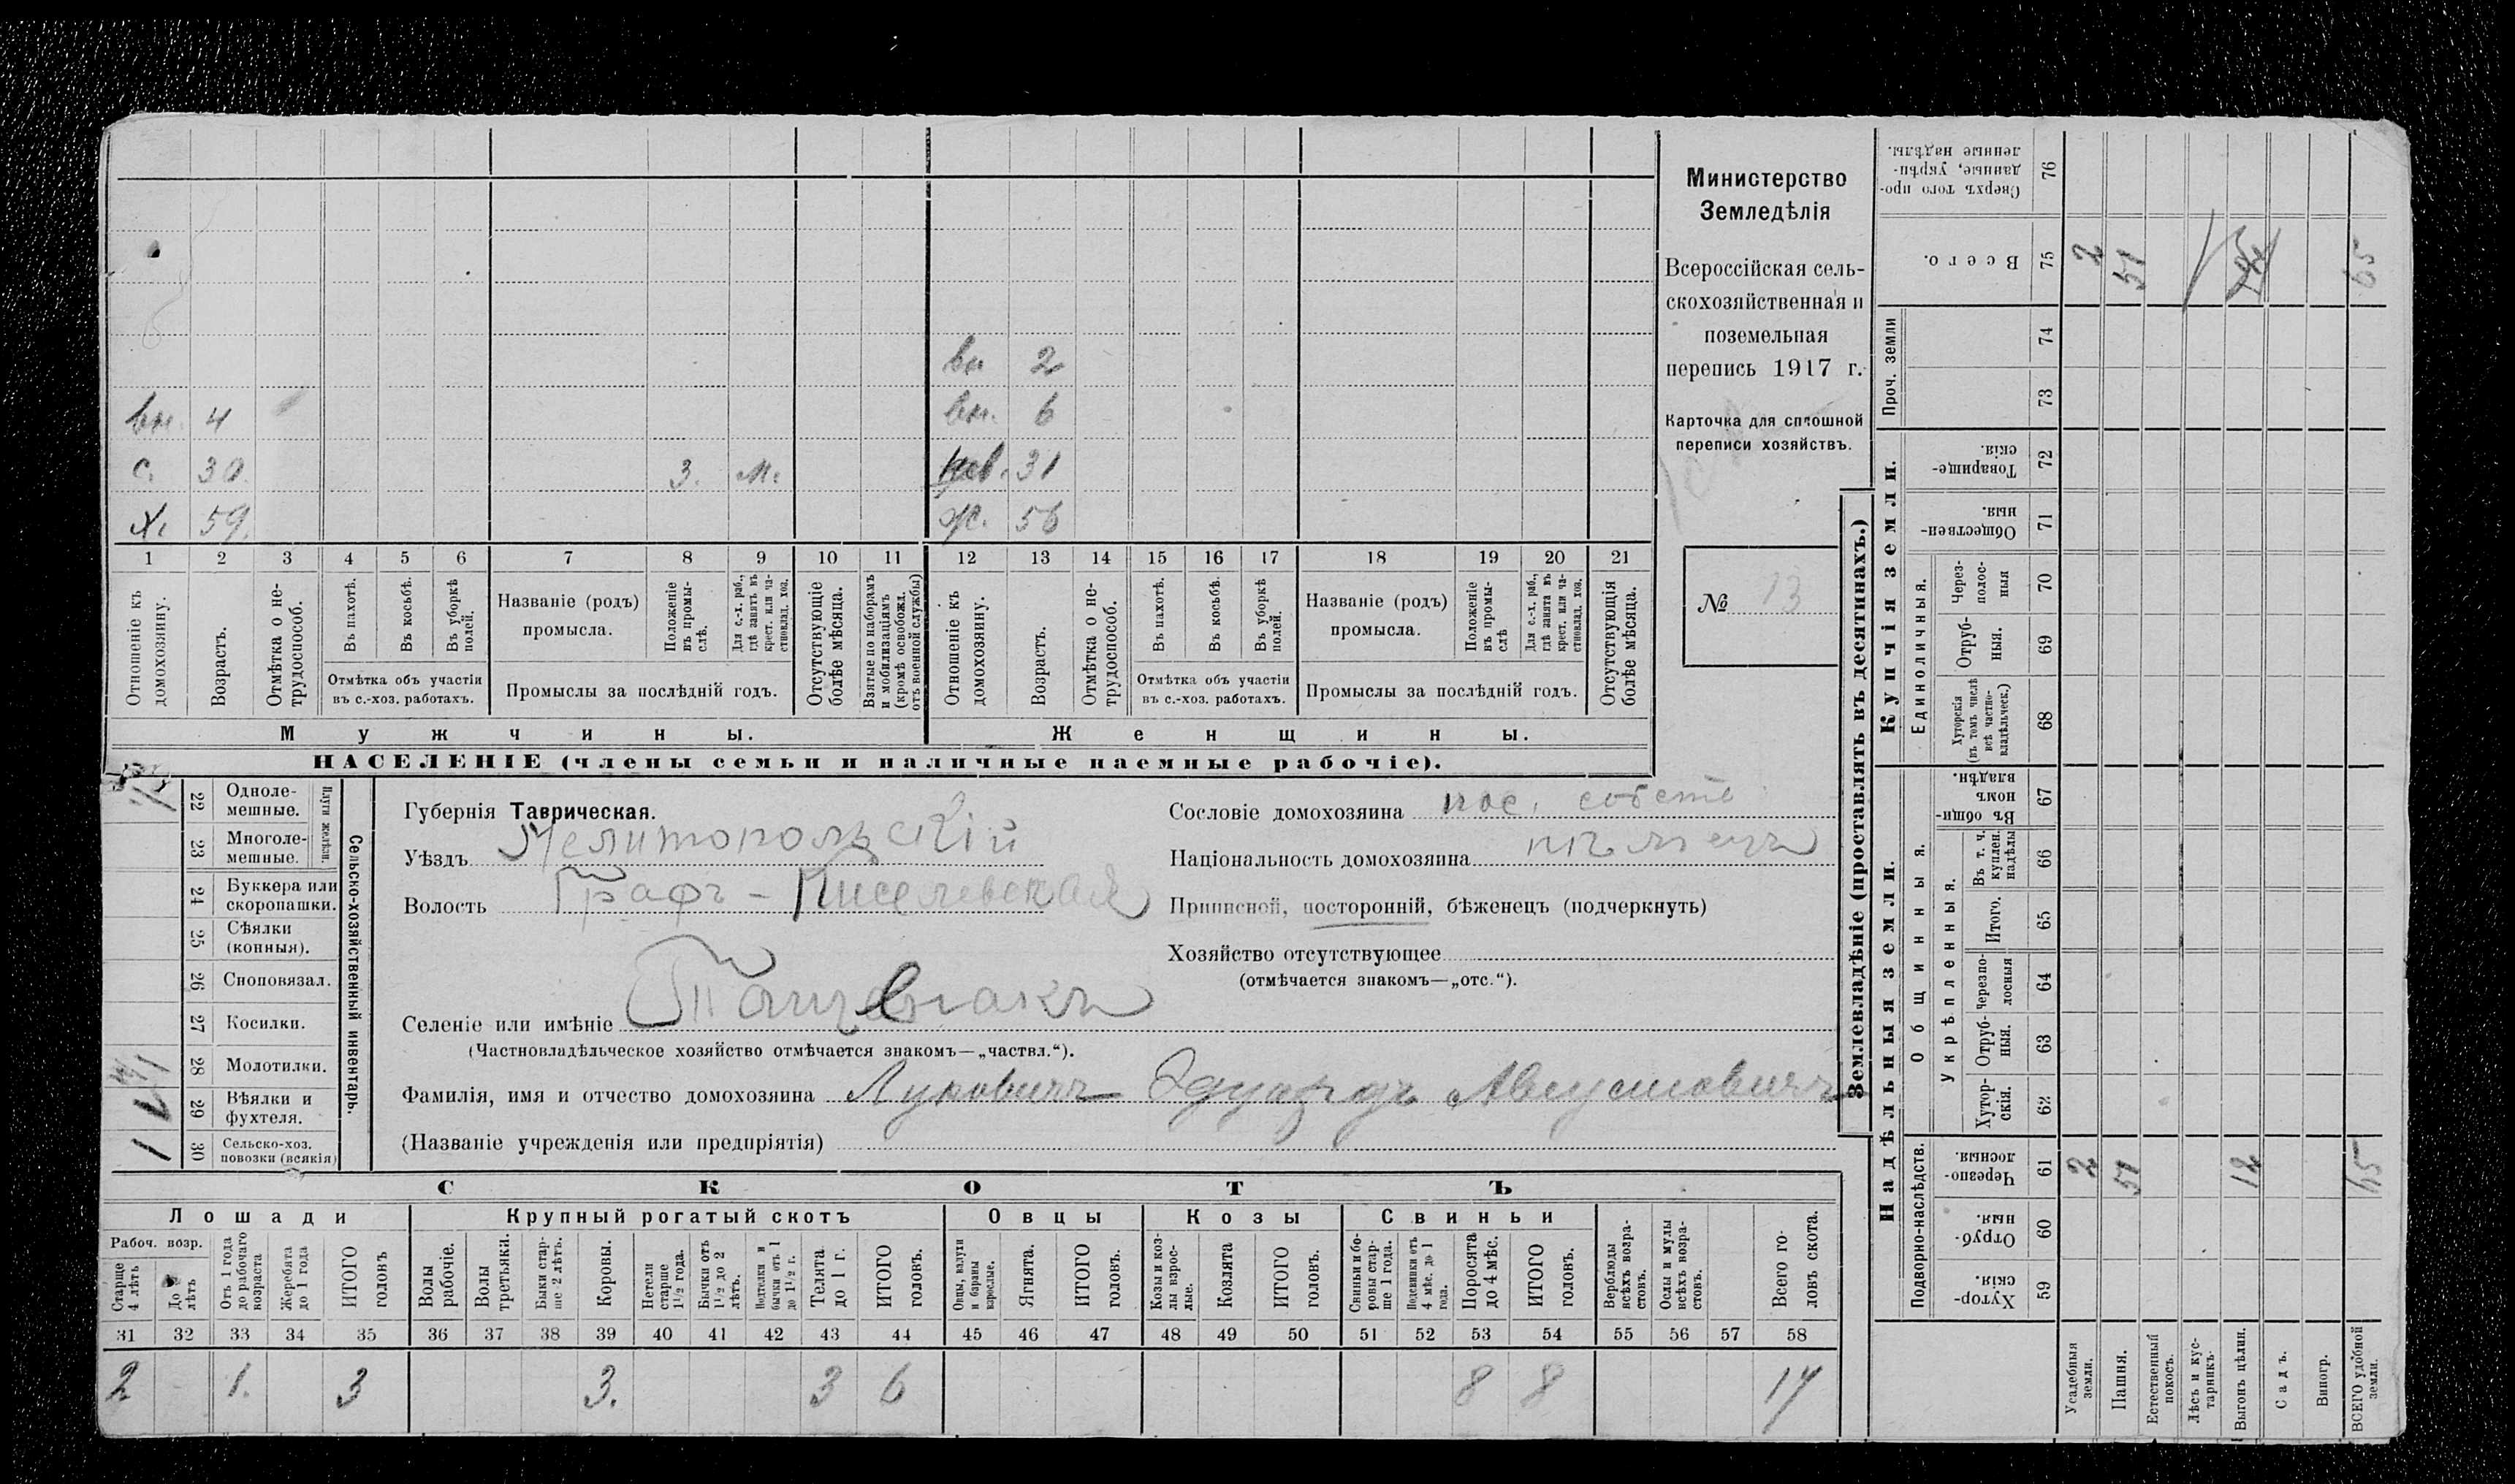 вн 2
вн. 4 вн. 6
с. 30. 3. м. 31
Х. 59. ж. 56
1 2 3 4 5 6 7 8 9 10 11 12 13 14 15 16 17 18 19 20 21
Отношеніе къ домохозяину.
Возрастъ.
Отмѣтка о не-
трудоспособ.
Въ пахотѣ.
Въ косьбѣ.
Въ уборкѣ
полей.
Отмѣтка объ участіи
въ с.-хоз. работахъ.
Названіе (родъ)
промысла.
Положеніе
въ промы-
слѣ.
Для с.-х. раб.,
гдѣ занятъ въ
крест. или ча-
стновлад. хоз.
Промыслы за послѣдній годъ.
Отсутствующіе
болѣе мѣсяца.
Взятые по наборамъ
и мобилизаціямъ
(кромѣ освобожд.
отъ военной службы)
Отношеніе къ
домохозяину.
Возрастъ.
Отмѣтка о не-
трудоспособ.
Въ пахотѣ.
Въ косьбѣ.
Въ уборкѣ
полей.
Отмѣтка объ участіи
въ с.-хоз. работахъ.
Названіе (родъ)
промысла.
Положеніе
въ промы-
слѣ
Для с.-х. раб.,
гдѣ занята въ
крест. или ча-
стновлад. хоз.
Промыслы за послѣдній годъ.
Отсутствующія
болѣе мѣсяца.
Мужчины. Женщины.
НАСЕЛЕНІЕ (члены семьи и наличные наемные рабочіе).
Министерство
Земледѣлія
Всероссійская сель-
скохозяйственная и
поземельная
перепись 1917 г.
Карточка для сплошной
переписи хозяйствъ.
№ 13
22 Одноле-
мешные.
23 Многоле-
мешные.
Плуги желѣзн.
24 Буккера или
скоропашки.
25 Сѣялки
(конныя).
26 Сноповязал.
27 Косилки.
28 Молотилки.
29 Вѣялки и
фухтеля.
1 30 Сельско-хоз.
повозки (всякія)
Сельско-хозяйственный инвентарь.
Губернія Таврическая.
Уѣздъ Мелитопольскій
Волость Графъ-Киселевская
Селеніе или имѣніе
(Частновладѣльческое хозяйство отмѣчается знакомъ—„частвл.“).
Фамилія, имя и отчество домохозяина Эдуардъ Августовичъ
(Названіе учрежденія или предпріятія)
Сословіе домохозяина пос. собств.
Національность домохозяина нѣмецъ
Приписной, посторонній, бѣженецъ (подчеркнуть)
Хозяйство отсутствующее
(отмѣчается знакомъ—„отс.“).
СКОТЪ
Лошади Крупный рогатый скотъ Овцы Козы Свиньи
Рабоч. возр.
Старше
4 лѣтъ
До
лѣтъ
Отъ 1 года
до рабочаго
возраста
Жеребята
до 1 года
ИТОГО
головъ
Волы
рабочіе.
Волы
третьяки.
Быки стар-
ше 2 лѣтъ.
Коровы.
Нетели
старше
1½ года.
Бычки отъ
1½ до 2
лѣтъ.
Подтелки и
бычки отъ 1
до 1½ г.
Телята
до 1 г.
ИТОГО
головъ.
Овцы, валухи
и бараны
взрослые.
Ягнята.
ИТОГО
головъ.
Козы и коз-
лы взрос-
лые.
Козлята
ИТОГО
головъ.
Свиньи и бо-
ровы стар-
ше 1 года.
Подсвинки отъ
4 мѣс. до 1
года.
Поросята
до 4 мѣс.
ИТОГО
головъ.
Верблюды
всѣхъ возра-
стовъ.
Ослы и мулы
всѣхъ возра-
стовъ.
Всего го-
ловъ скота.
31 32 33 34 35 36 37 38 39 40 41 42 43 44 45 46 47 48 49 50 51 52 53 54 55 56 57 58
2 1. 3 3. 3 6 8 8 17
Землевладѣніе (проставлять въ десятинахъ.)
Надѣльныя земли. Купчія земли.
Подворно-наслѣдств.
Общинныя.
Укрѣпленныя.
Единоличныя.
Проч. земли
Сверхъ того про-
данные, укрѣп-
ленные надѣлы.
76
Всего. 75 2 51 65
74
73
Товарище-
скія.
72
Обществен-
ныя.
71
Через-
полос-
ныя
70
Отруб-
ныя.
69
Хуторскія
(въ томъ числѣ
всѣ частно-
владѣльческ.)
68
Въ общин-
номъ
владѣн.
67
Въ т. ч.
куплен.
надѣлы
66
Итого.
65
Черезпо-
лосныя
64
Отруб-
ныя.
63
Хутор-
скія.
62
Черезпо-
лосныя.
61 2 51 12 65
Отруб-
ныя.
60
Хутор-
скія.
59
Усадебныя
земли.
Пашня.
Естественный
покосъ.
Лѣсъ и кус-
тарникъ.
Выгонъ цѣлин.
Садъ.
Виногр.
ВСЕГО удобной
земли.